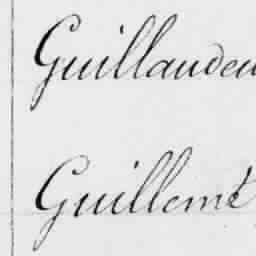 Guillaudeu
Guillemé